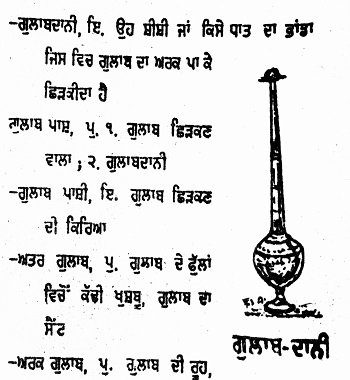 -ਗੁਲਾਬਦਾਨੀ, ਇ. ਉਹ ਸ਼ੀਸ਼ੀ ਜਾਂ ਕਿਸੇ ਧਾਤ ਦਾ ਭਾਂਡਾ
ਜਿਸ ਵਿਚ ਗੁਲਾਬ ਦਾ ਅਰਕ ਪਾ ਕੇ
ਛਿੜਕੀਦਾ ਹੈ
ਗੁਲਾਬ ਪਾਸ਼, ਪੁ. ੧. ਗੁਲਾਬ ਛਿੜਕਣ
ਵਾਲਾ ; ੨. ਗੁਲਾਬਦਾਨੀ
-ਗੁਲਾਬ ਪਾਸ਼ੀ, ਇ. ਗੁਲਾਬ ਛਿੜਕਣ
ਦੀ ਕਿਰਿਆ
-ਅਤਰ ਗੁਲਾਬ, ਪੁ. ਗੁਲਾਬ ਦੇ ਫੁੱਲਾਂ
ਵਿਚੋਂ ਕੱਢੀ ਖੁਸ਼ਬੂ, ਗੁਲਾਬ ਦਾ
ਸੈਂਟ
-ਅਰਕ ਗੁਲਾਬ, ਪੁ. ਗੁਲਾਬ ਦੀ ਰੂਹ,
ਗੁਲਾਬ-ਦਾਨੀ